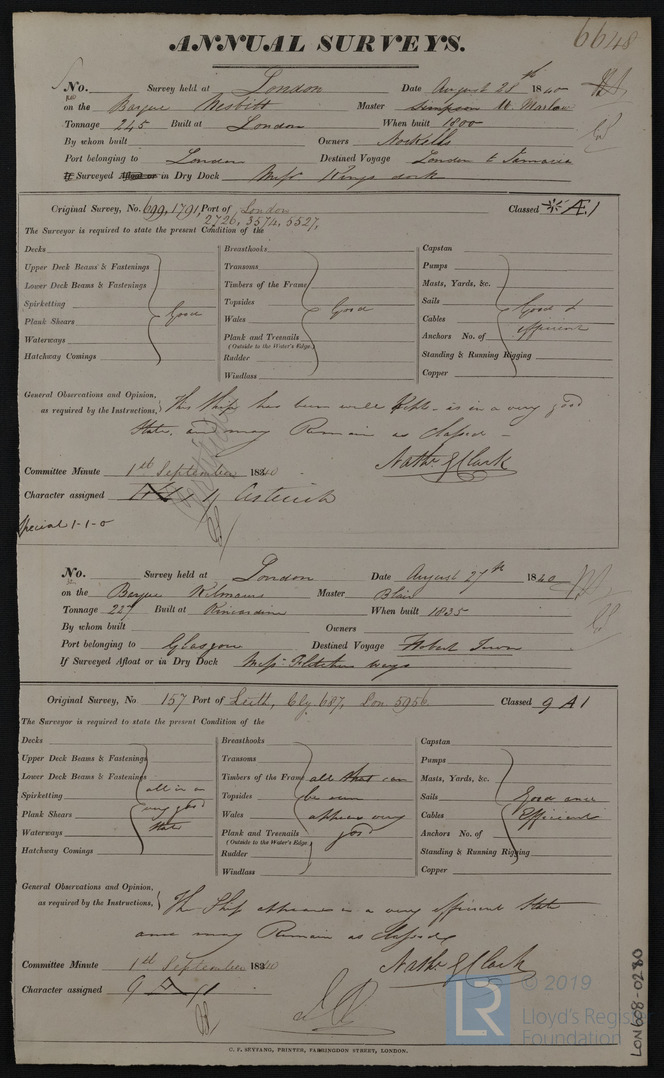 6648
ANNUAL SURVEYS.
No. Survey held at London Date August 28th 1840
on the Barque Nesbitt Master Simpson
Tonnage 245 Built at London When built 1800
By whom built Owners
Port belonging to London Destined Voyage London to Jamaica
If Surveyed Afloat or in Dry Dock Messrs Kings dock
Original Survey, No. 699, 1791, Port of London Classed A.1
2726, 3574, 5527,
The Surveyor is required to state the present Condition of the
Decks Breasthooks Capstan
Upper Deck Beams & Fastenings Transoms Pumps
Lower Deck Beams & Fastenings Timbers of the Frame Masts, Yards, &c.
Spirketting Good Topsides Good Sails Good &
Plank Shears Wales Cables efficient
Waterways Plank and Treenails Anchors No. of
(Outside to the Water's Edge)
Hatchway Comings Rudder Standing & Running Rigging
Windlass Copper
General Observations and Opinion, This Ship has been well kept - is in a very good
as required by the Instructions, State, and may Remain as Classed -
Nathl G Clark
Committee Minute 1st September 1840
Character assigned 1 Asterisk
Special 1-1-0
No. Survey held at London Date August 27th 1840
on the Barque Master Blair
Tonnage 227 Built at Kincardine When built 1835
By whom built Owners
Port belonging to Glasgow Destined Voyage Hobert Town
If Surveyed Afloat or in Dry Dock Messrs Fletchers ways
Original Survey, No 157 Port of Leith, Cly 687, Lon 5956 Classed 9 A 1
The Surveyor is required to state the present Condition of the
Decks Breasthooks Capstan
Upper Deck Beams & Fastenings Transoms Pumps
Lower Deck Beams & Fastenings all in a Timbers of the Frame all that can Masts, Yards, &c.
Spirketting very good Topsides be seen Sails Good and
Plank Shears state Wales appears very Cables Efficient
Waterways Plank and Treenails good Anchors No. of
(Outside to the Water's Edge)
Hatchway Comings Rudder Standing & Running Rigging
Windlass Copper
General Observations and Opinion, Th Ship appears in a very efficient State
as required by the Instructions, and may Remain as Classed
Nathl G Clark
Committee Minute 1st September 1840
Character assigned 9 A 1
C. F. SEYFANG, PRINTER, FARRINGDON STREET, LONDON.
LON608-0280
LR
© 2019
Lloyd's Register
Foundation